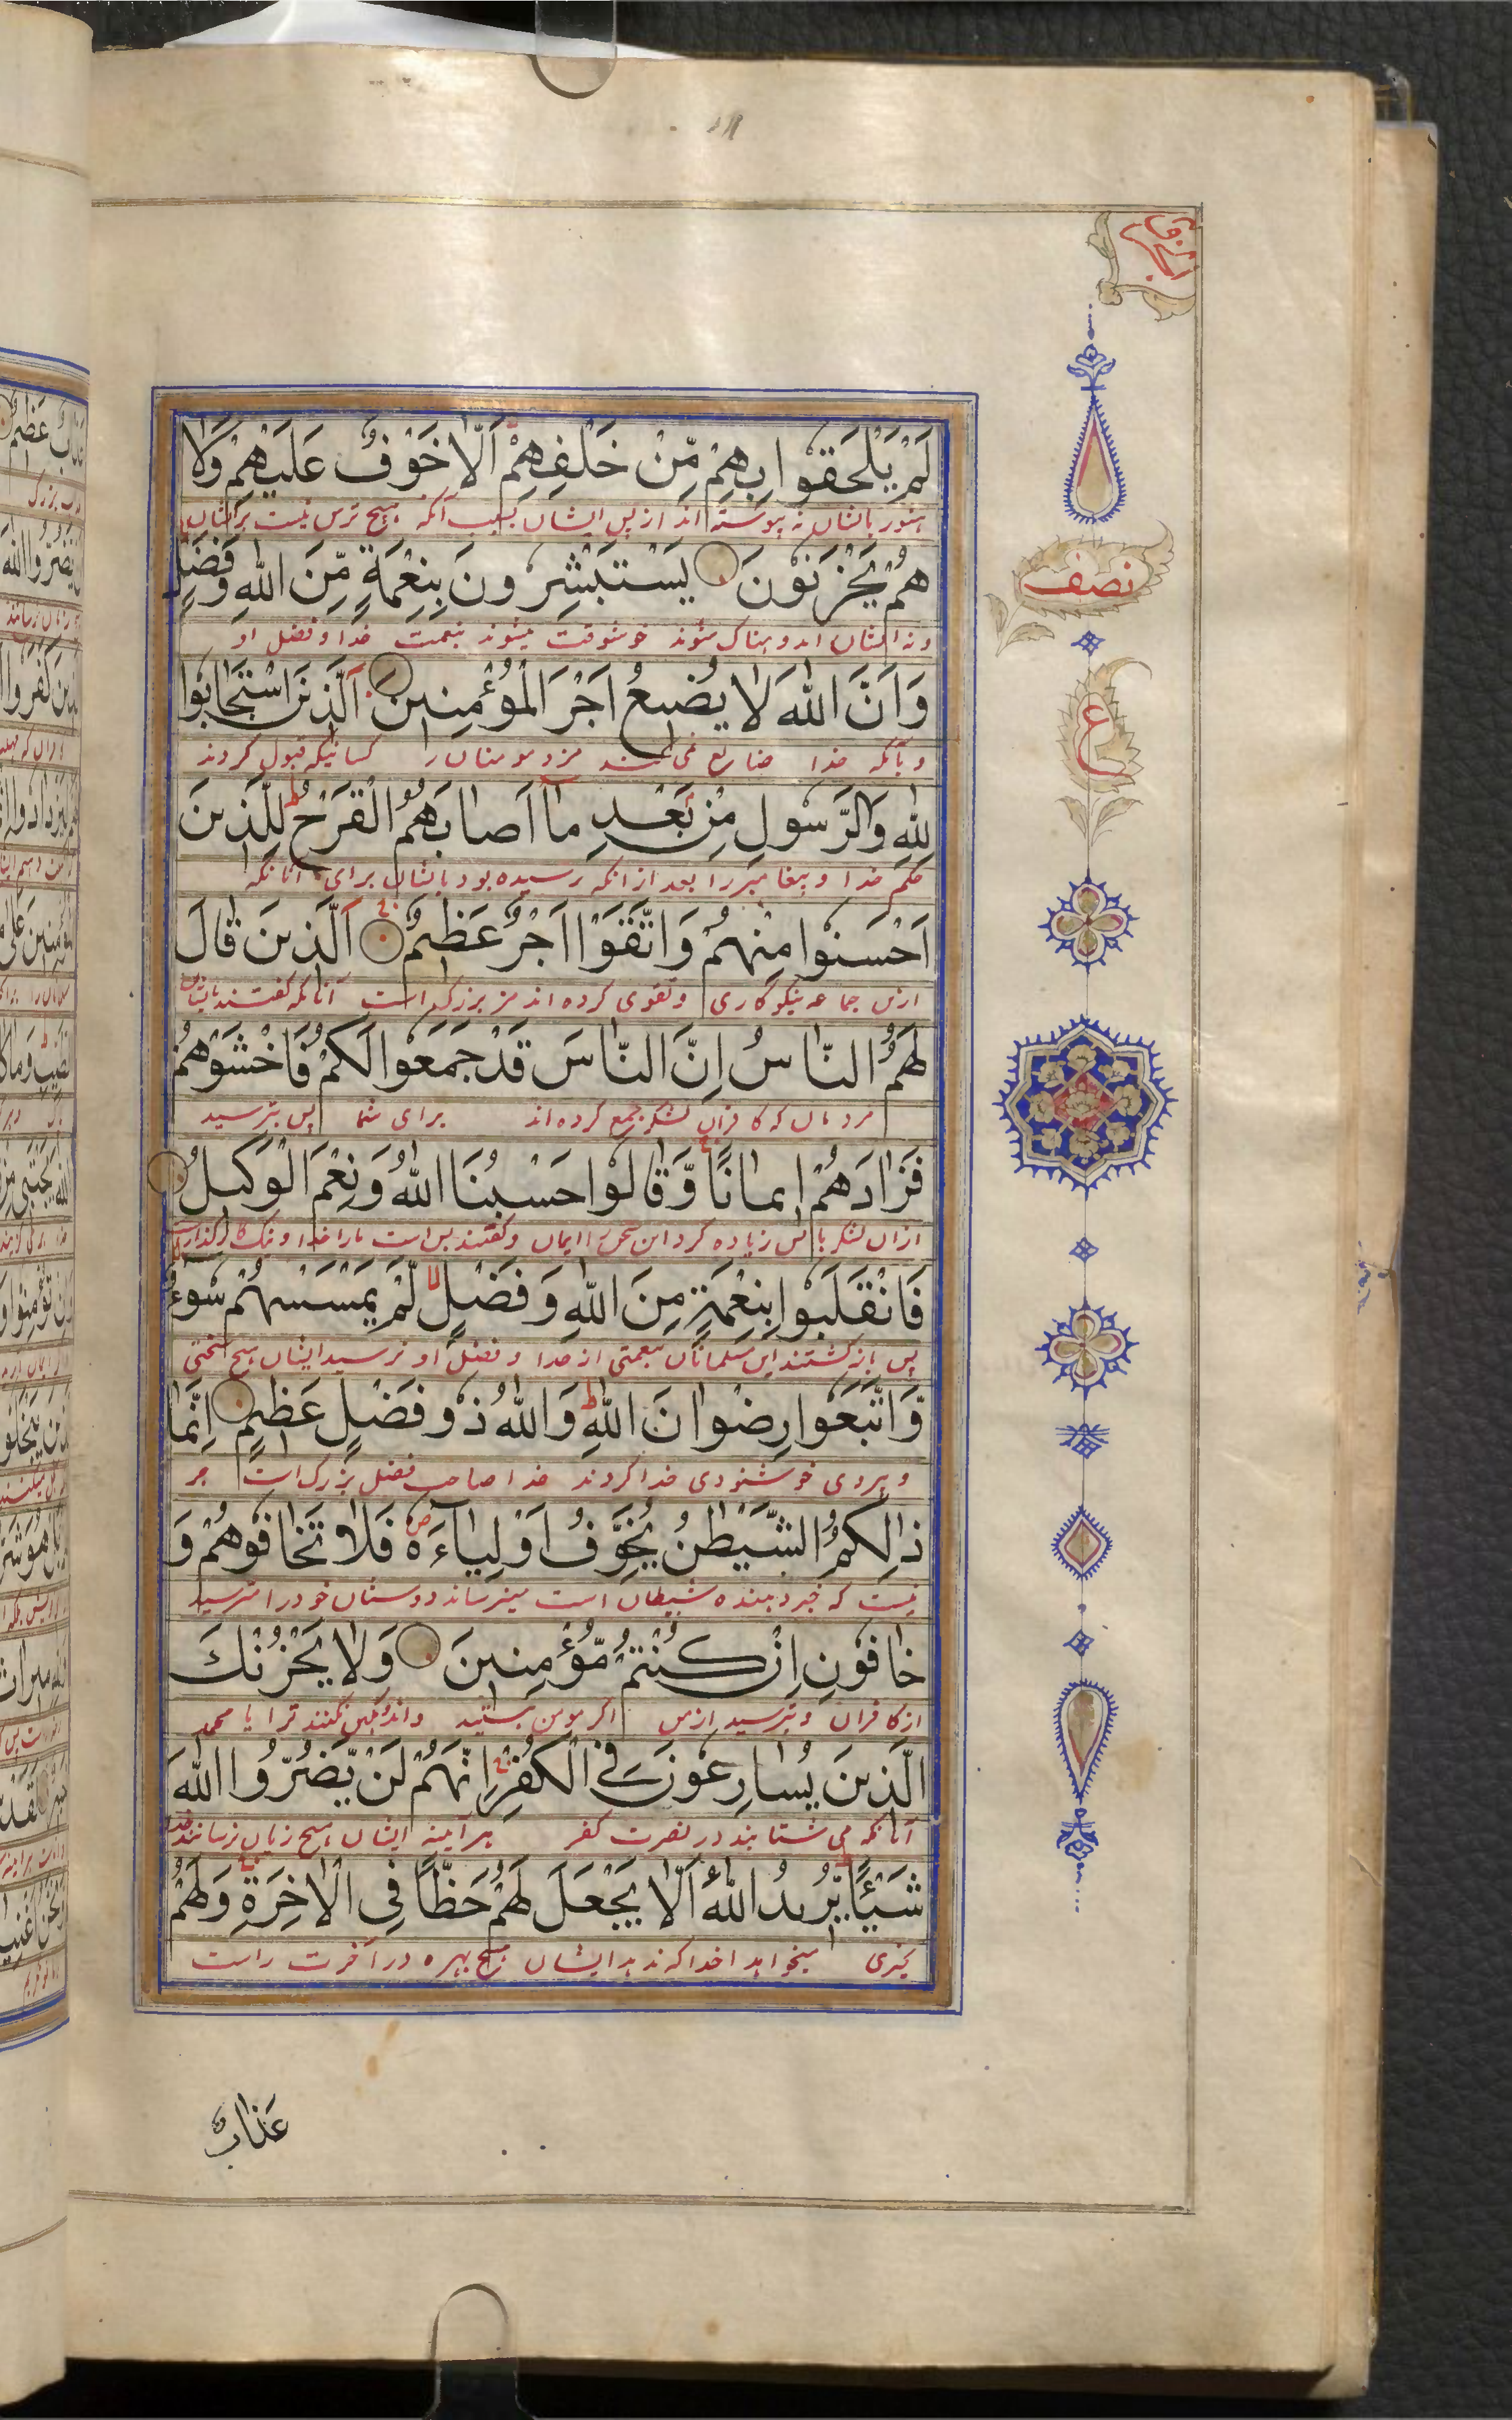 لَمْ يَلْحَقُوا بِهِمْ مِّنْ خَلْفِهِمْ اَلَّا خَوْفٌ عَلَيْهِمْ وَلَا
هنوز بایشان نه پیوسته اند از پس ایشان بسبب آنکه هیچ ترس نیست بر ایشان
هُمْ يَحْزَنُوْنَ يَسْتَبْشِرُونَ بِنِعْمَةٍ مِّنَ اللّٰهِ وَفَضْلٍ
نصف
و نه ایشان اندوهناک شوند خوشوقت میشوند بنعمت خدا و فضل او
وَاَنَّ اللّٰهَ لَا يُضِيعُ اَجْرَ الْمُؤْمِنِينَ اَلَّذِينَ اسْتَجَابُوا
ع
و بآنکه خدا ضایع نمی کند مزد مومنان را کسانیکه قبول کردند
لِلّٰهِ وَالرَّسُولِ مِنْ بَعْدِ مَا اَصَابَهُمُ الْقَرْحُ لِلَّذِينَ
حکم خدا و پیغامبر را بعد از انکه رسیده بود بایشان برای آنانکه
اَحْسَنُوا مِنْهُمْ وَاتَّقَوْا اَجْرٌ عَظِيمٌ اَلَّذِينَ قَالَ
ازین جماعه نیکوکاری و تقوی کرده اند مزد بزرگ است آنانکه گفتند بایشان
لَهُمُ النَّاسُ اِنَّ النَّاسَ قَدْ جَمَعُوا لَكُمْ فَاخْشَوْهُمْ
مردمان که کافران لشکر جمع کرده اند برای شما پس بترسید
فَزَادَهُمْ اِيمَانًا وَّقَالُوا حَسْبُنَا اللّٰهُ وَنِعْمَ الْوَكِيلُ
ازان لشکر زیاده کرد این سخن ایمان و گفتند بس است ما را خدا و نیک کارگذار است
فَانْقَلَبُوا بِنِعْمَةٍ مِنَ اللّٰهِ وَفَضْلٍ لَّمْ يَمْسَسْهُمْ سُوءٌ
پس باز گشتند این مسلمانان بنعمتی از خدا و فضل او نرسید ایشان هیچ سختی
وَّاتَّبَعُوا رِضْوَانَ اللّٰهِ وَاللّٰهُ ذُو فَضْلٍ عَظِيمٍ اِنَّمَا
و پیروی خوشنودی خدا کردند خدا صاحب فضل بزرگ است جز
ذٰلِكُمُ الشَّيْطٰنُ يُخَوِّفُ اَوْلِيَاءَهُ فَلَا تَخَافُوهُمْ وَ
نیست که خبر دهنده شیطان است میترساند دوستان خود را مترسید
خَافُونِ اِنْ كُنْتُمْ مُّؤْمِنِينَ وَلَا يَحْزُنْكَ
از کافران و بترسید از من اگر مومن هستید و اندوهگین نکنند ترا یا محمد
الَّذِينَ يُسَارِعُونَ فِي الْكُفْرِ اِنَّهُمْ لَنْ يَّضُرُّوا اللّٰهَ
آنانکه می شتابند در نصرت کفر هر آینه ایشان هیچ زیان نرسانند خدا
شَيْئًا يُرِيدُ اللّٰهُ اَلَّا يَجْعَلَ لَهُمْ حَظًّا فِي الْاٰخِرَةِ وَلَهُمْ
چیزی میخواهد خدا که ندهد ایشان هیچ بهره در آخرت راست
عَذَابٌ